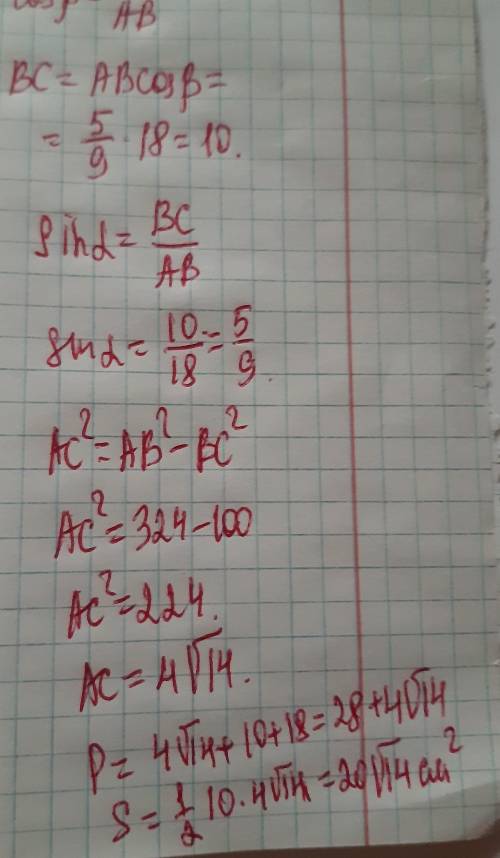 AB
BC = ABcosβ =
= 5/9 · 18 = 10.
sinα = BC/AB
sinα = 10/18 = 5/9.
AC² = AB² - BC²
AC² = 324 - 100
AC² = 224.
AC = 4√14.
P = 4√14 + 10 + 18 = 28 + 4√14
S = 1/2 10 · 4√14 = 20√14 см²